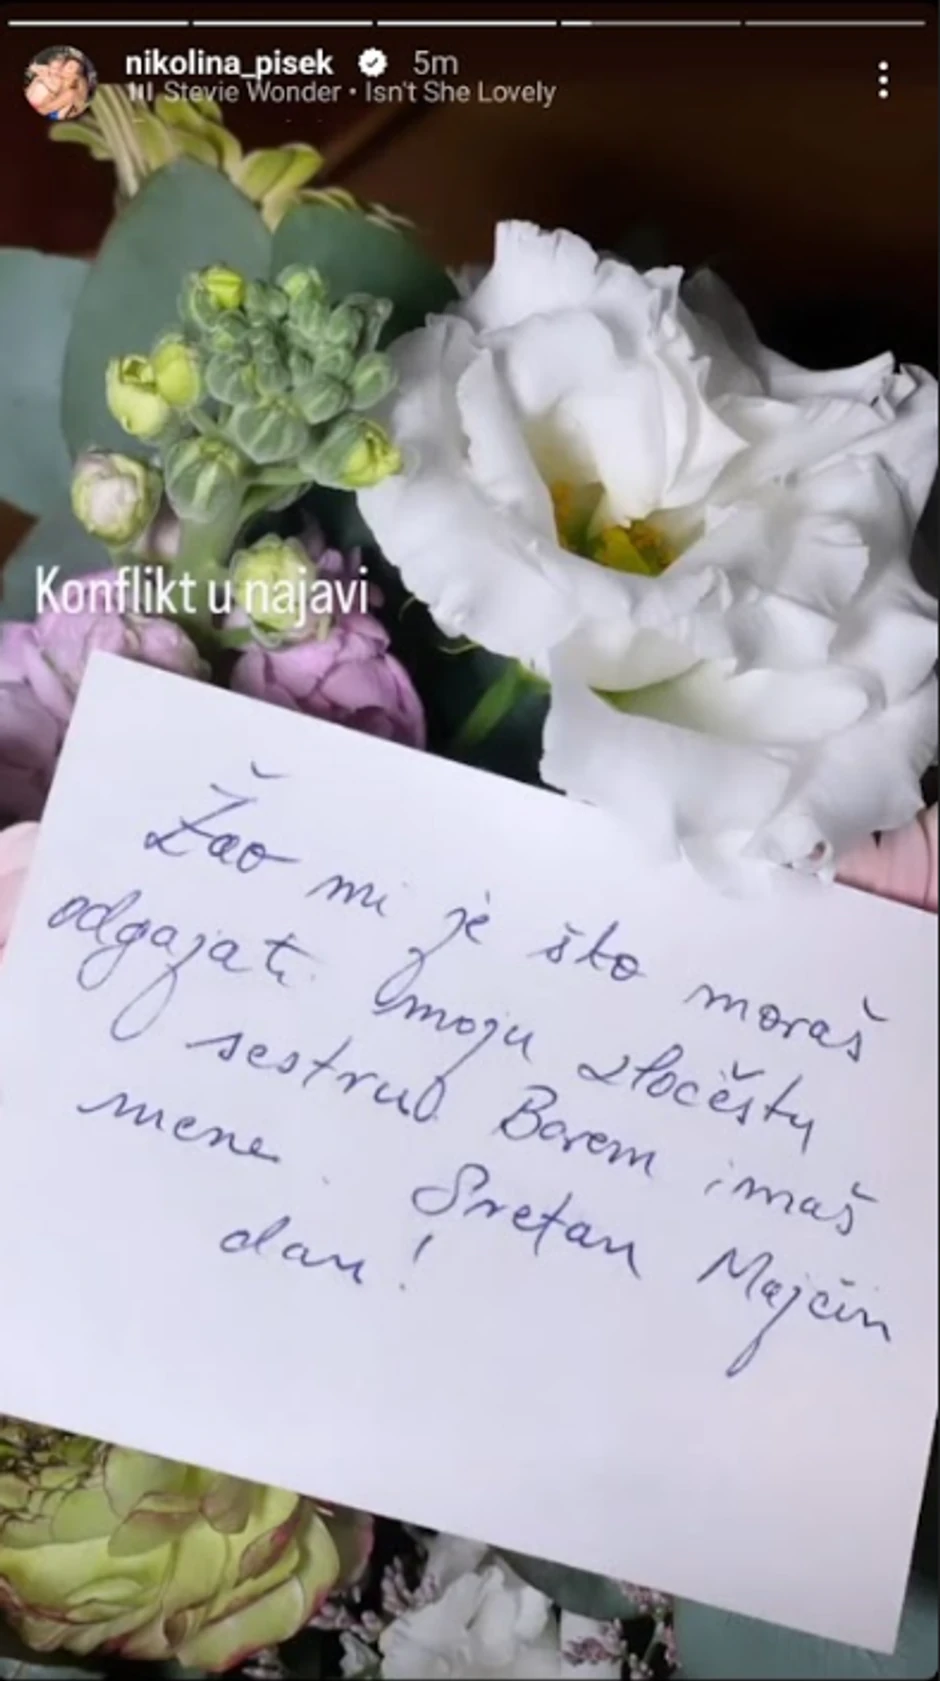 nikolina_pisek 5m
Stevie Wonder • Isn't She Lovely
Konflikt u najavi
Žao mi je što moraš
odgajati moju zločestu
sestru. Barem imaš
mene. Sretan Majčin
dan!